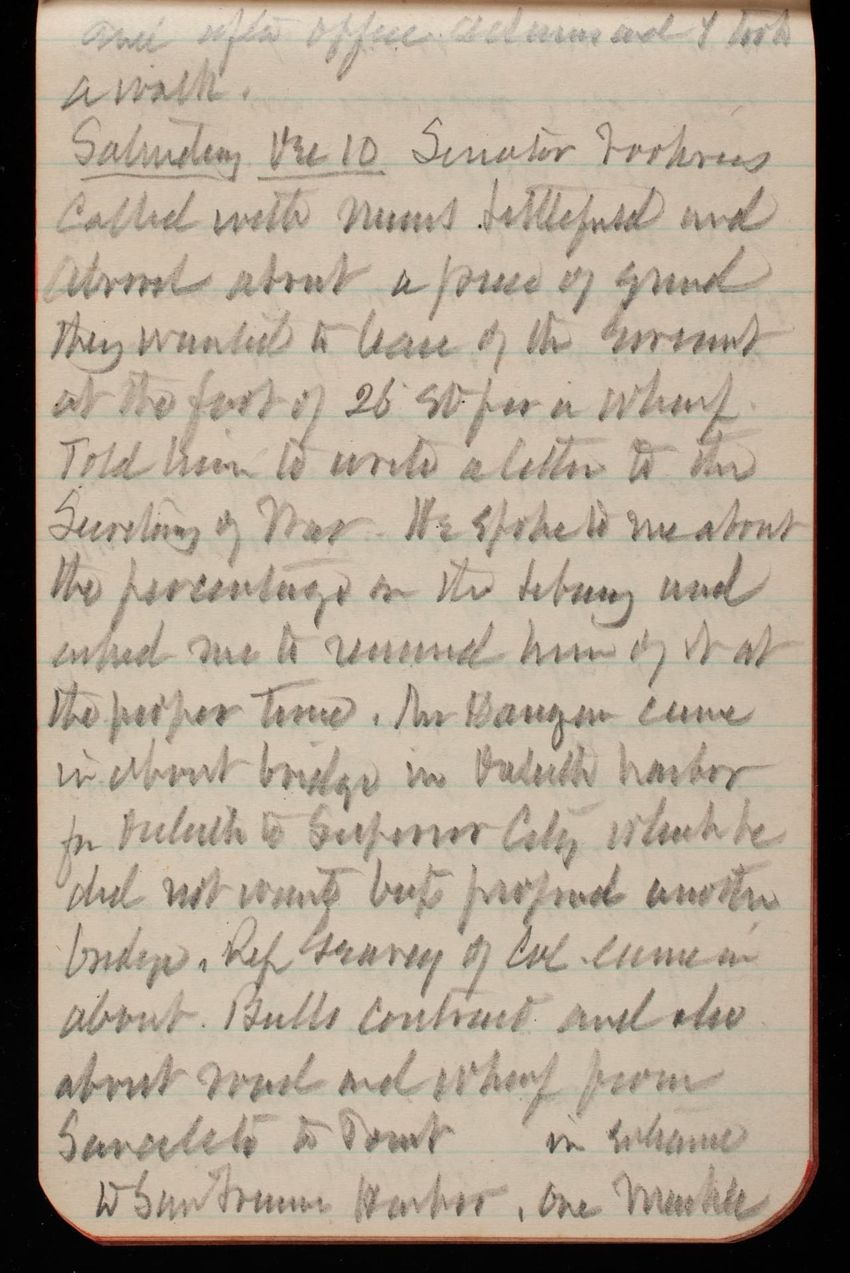 and after office Adams and I took
a walk.
Saturday Dec 10 Senator Voohries
Called with Messrs Littlefield and
about a piece of grund
they wanted to lease of the Goverment
at the foot of 26 St for a wharf.
Told him to write a letter to the
Secretary of War. He spoke to me about
the percentage on the library and
asked me to remind him of it at
the proper time. Mr came
in about bridge in Duluth harbor
fr Duluth to Superior City which he
did not want but proposed another
bridge. Rep Geary of Cal. came in
about. Bulls contract and also
about road and wharf from
to Point in entrance
to San Francisco Harbor. One